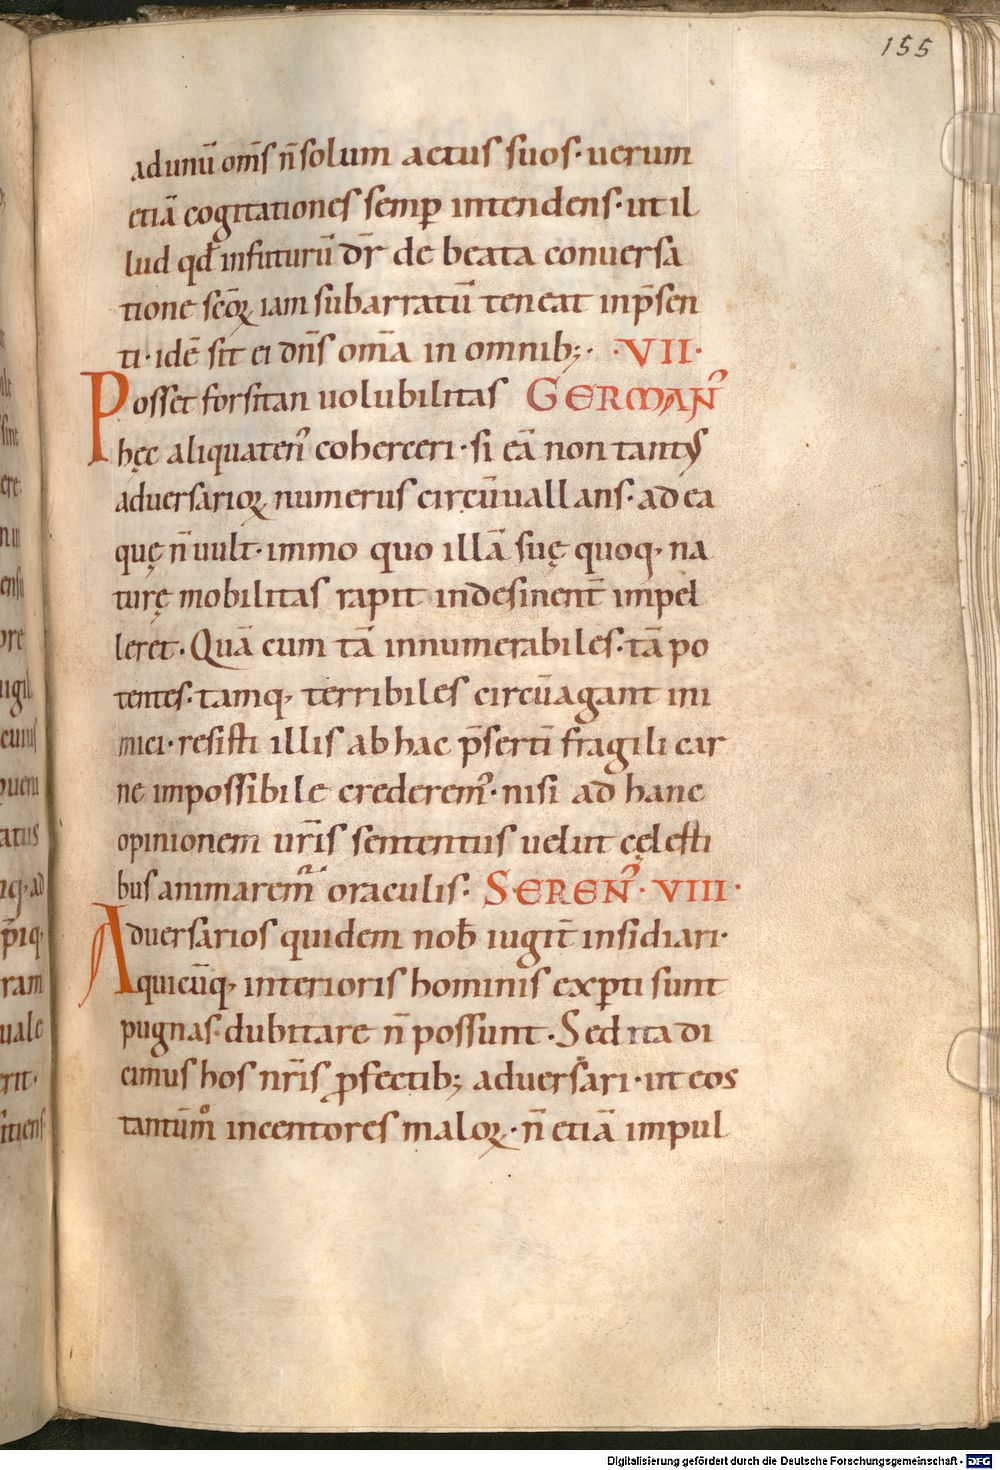 155
adunū om̄s n̄ solum actus suos· uerum
etiā cogitationes semꝑ intendens· ut il
lud qđ infuturū dr̄ de beata conuersa
tione sc̄oꝝ iam subarratū teneat inp̄sen
ti· idē sit ei dn̄s om̄a in omnib;· ·VII·
Posset forsitan uolubilitas GERMAN᾽
hęc aliquaten᾽ coherceri· si eā non tantus
aduersarioꝝ numerus circūuallans· ad ea
quę n̄ uult· immo quo illā suę quoq, na
turę mobilitas rapit indesinent̄ impel
leret· Quā cum tā innumerabiles· tā po
tentes· tamq, terribiles circūagant ini
mici· resisti illis ab hac p̄sertī fragili car
ne impossibile crederem᾽· nisi ad hanc
opinionem ur̄is sententiis uelut cęlesti
bus animarem᾽ oraculis· SEREN᾽· VIII·
Aduersarios quidem nob̄ iugit̄ insidiari·
quicūq, interioris hominis exꝑti sunt
pugnas· dubitare n̄ possunt· Sed ita di
cimus hos nr̄is ꝓfectib; aduersari· ut eos
tantūmᵒ incentores maloꝝ· n̄ etiā impul
Digitalisierung gefördert durch die Deutsche Forschungsgemeinschaft - DFG